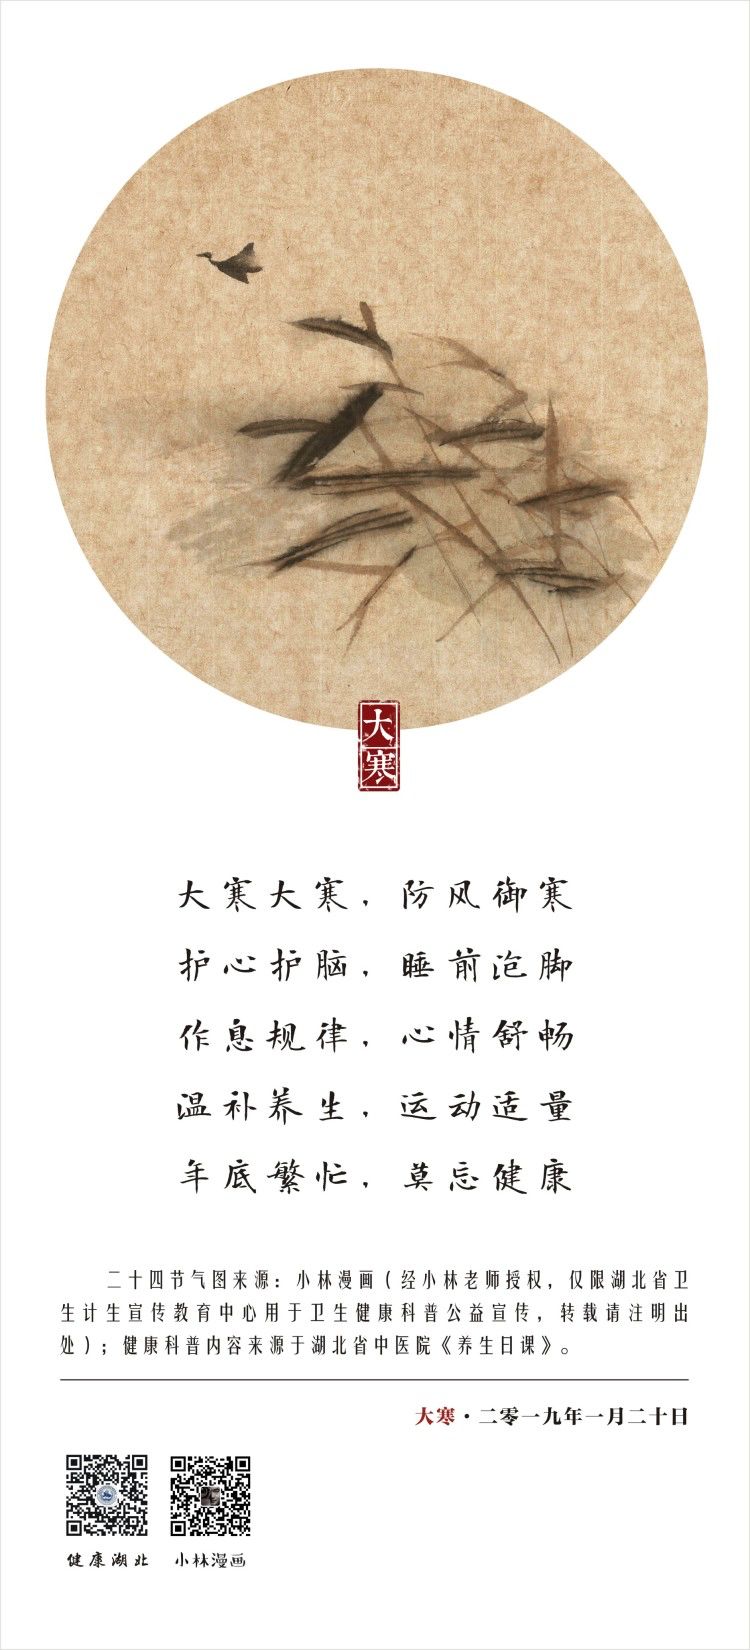 大寒
大寒大寒，防风御寒
护心护脑，睡前泡脚
作息规律，心情舒畅
温补养生，运动适量
年底繁忙，莫忘健康
二十四节气图来源：小林漫画（经小林老师授权，仅限湖北省卫
生计生宣传教育中心用于卫生健康科普公益宣传，转载请注明出
处）；健康科普内容来源于湖北省中医院《养生日课》。
大寒·二零一九年一月二十日
健康湖北 小林漫画